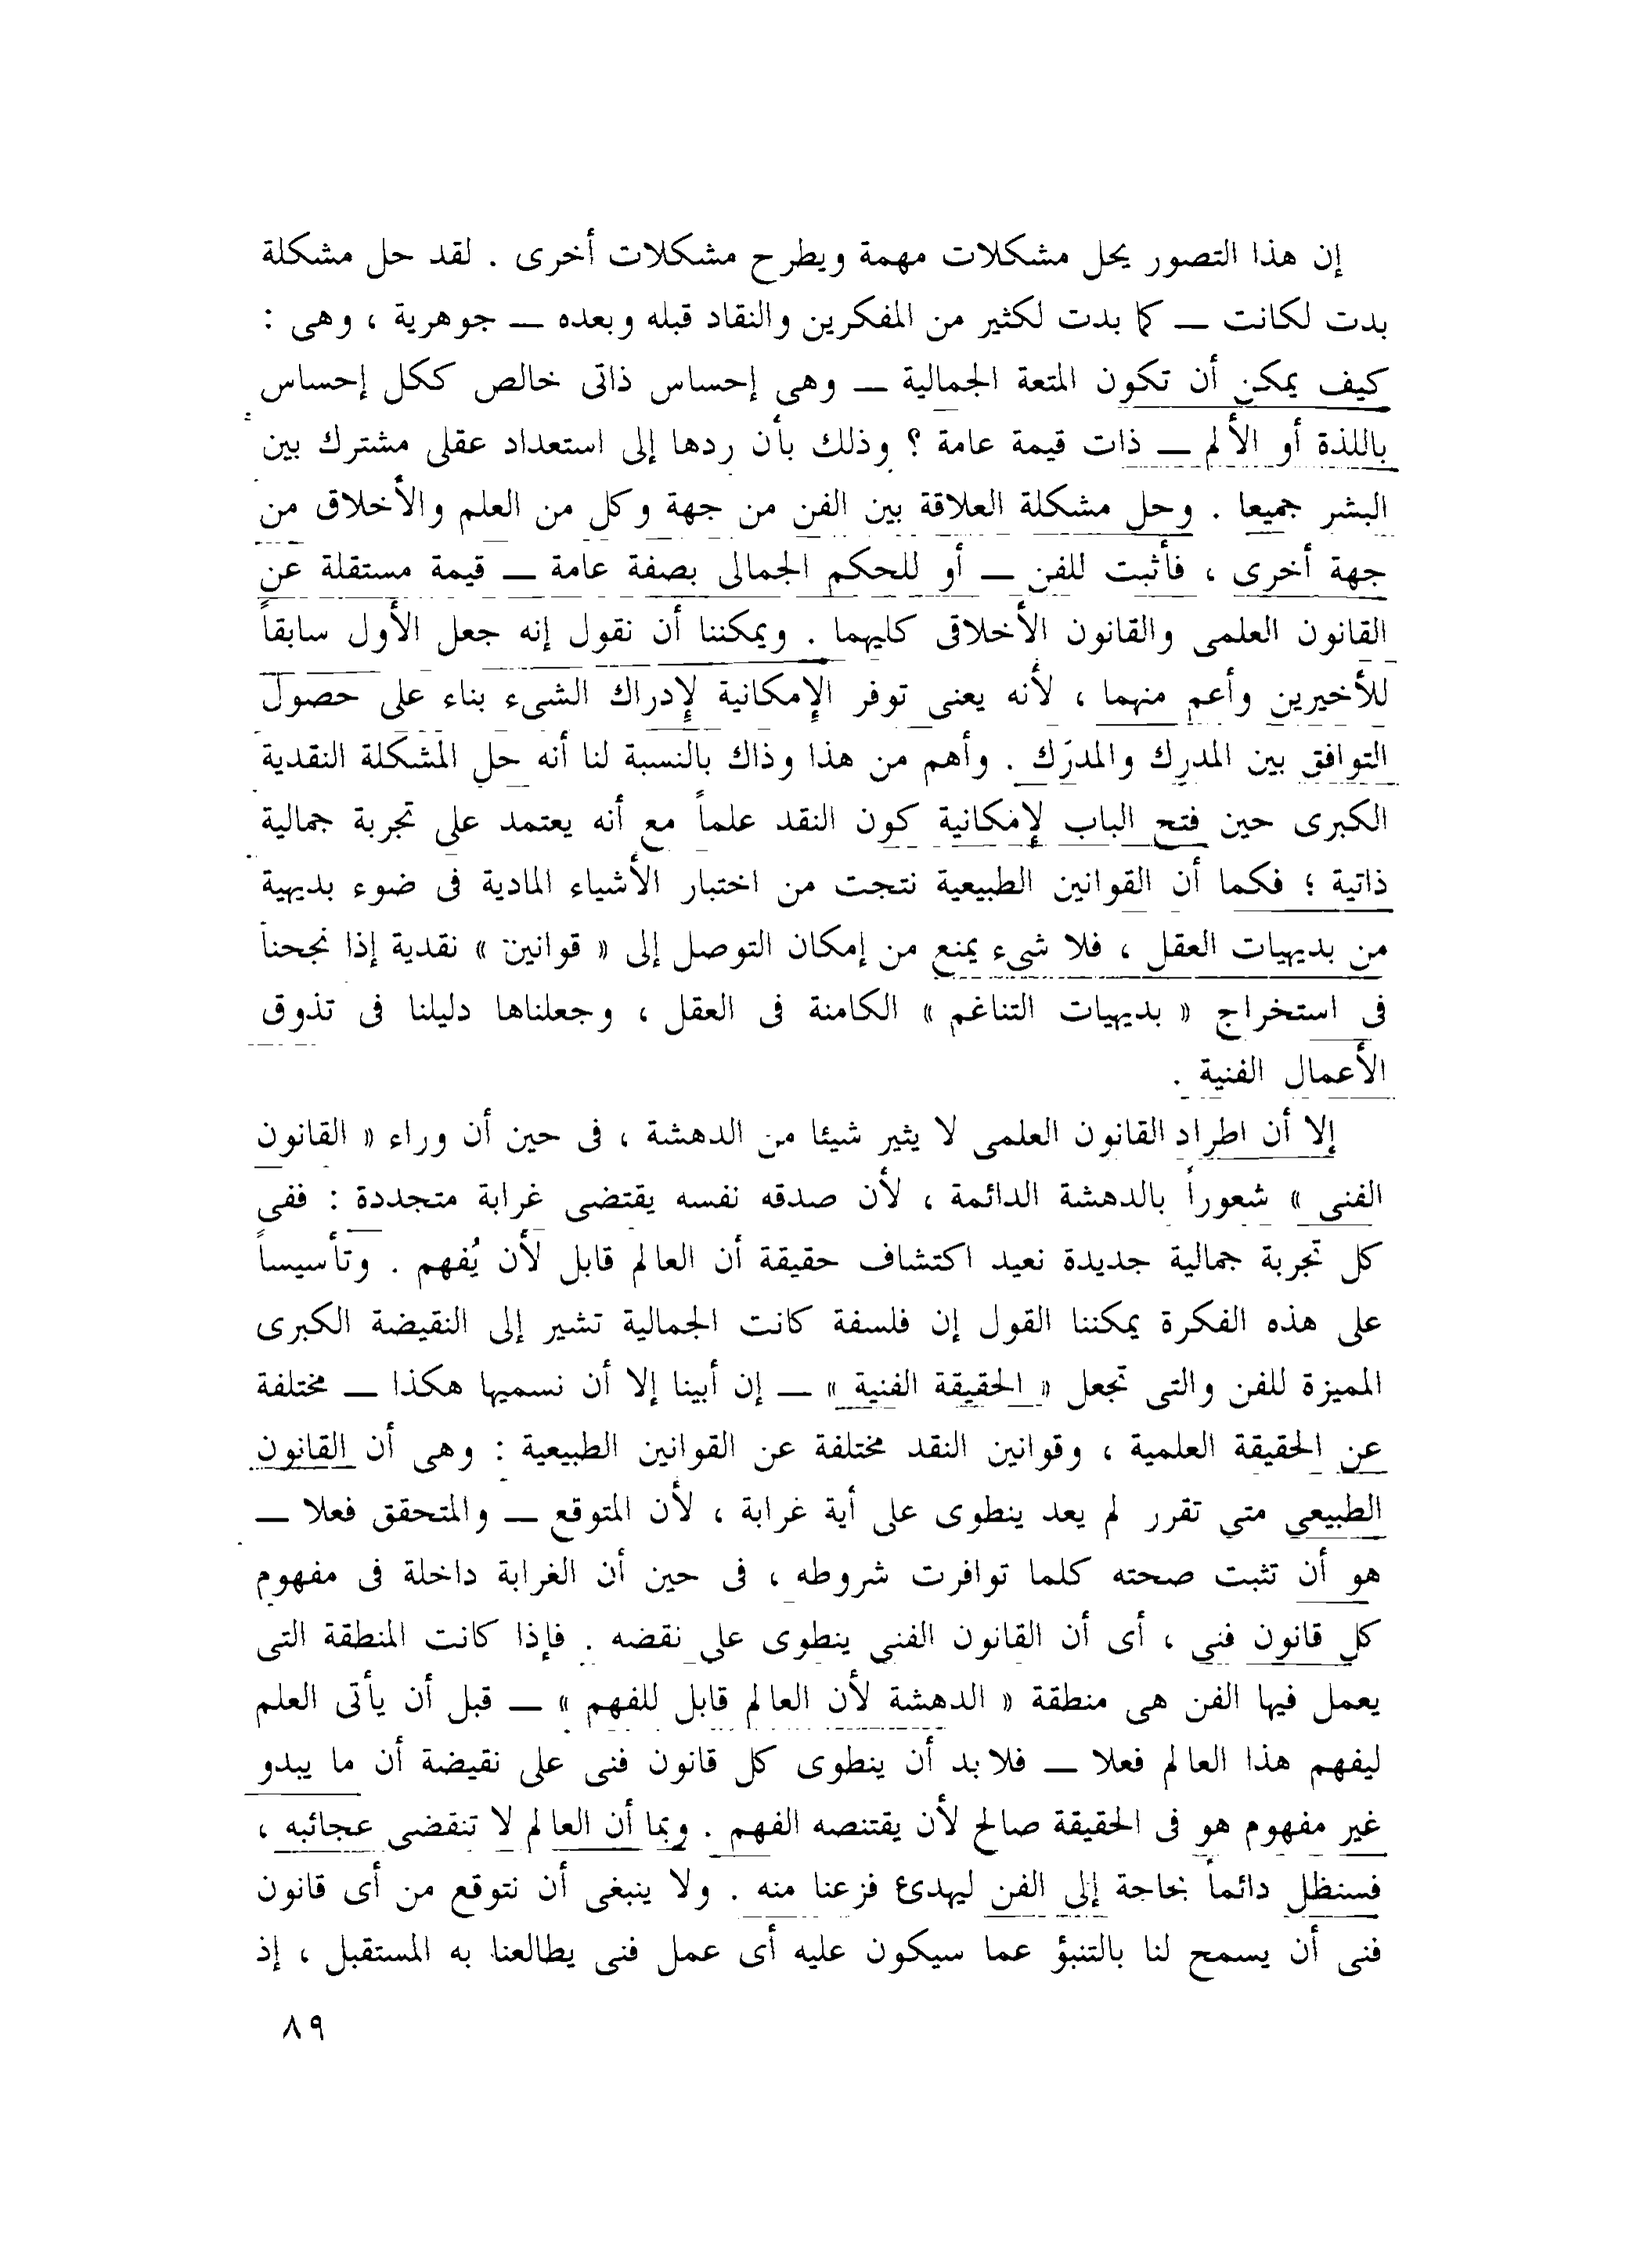 إن هذا التصور يحل مشكلات مهمة ويطرح مشكلات أخرى . لقد حل مشكلة
بدت لكانت ــ كما بدت لكثير من المفكرين والنقاد قبله وبعده ــ جوهرية ، وهى :
كيف يمكن أن تكون المتعة الجمالية ــ وهى إحساس ذاتى خالص ككل إحساس
باللذة أو الألم ــ ذات قيمة عامة ؟ وذلك بأن ردها إلى استعداد عقلى مشترك بين
البشر جميعا . وحل مشكلة العلاقة بين الفن من جهة وكل من العلم والأخلاق من
جهة أخرى ، فأثبت للفن ــ أو للحكم الجمالى بصفة عامة ــ قيمة مستقلة عن
القانون العلمى والقانون الأخلاقى كليهما . ويمكننا أن نقول إنه جعل الأول سابقاً
للأخيرين وأعم منهما ، لأنه يعنى توفر الإمكانية لإدراك الشىء بناء على حصول
التوافق بين المدرِك والمدرَك . وأهم من هذا وذاك بالنسبة لنا أنه حل المشكلة النقدية
الكبرى حين فتح الباب لإمكانية كون النقد علماً مع أنه يعتمد على تجربة جمالية
ذاتية ؛ فكما أن القوانين الطبيعية نتجت من اختبار الأشياء المادية فى ضوء بديهية
من بديهيات العقل ، فلا شىء يمنع من إمكان التوصل إلى « قوانين » نقدية إذا نجحنا
فى استخراج « بديهيات التناغم » الكامنة فى العقل ، وجعلناها دليلنا فى تذوق
الأعمال الفنية .
إلا أن اطراد القانون العلمى لا يثير شيئا من الدهشة ، فى حين أن وراء « القانون
الفنى » شعوراً بالدهشة الدائمة ، لأن صدقه نفسه يقتضى غرابة متجددة : ففى
كل تجربة جمالية جديدة نعيد اكتشاف حقيقة أن العالم قابل لأن يُفهم . وتأسيساً
على هذه الفكرة يمكننا القول إن فلسفة كانت الجمالية تشير إلى النقيضة الكبرى
المميزة للفن والتى تجعل « الحقيقة الفنية » ــ إن أبينا إلا أن نسميها هكذا ــ مختلفة
عن الحقيقة العلمية ، وقوانين النقد مختلفة عن القوانين الطبيعية : وهى أن القانون
الطبيعى متى تقرر لم يعد ينطوى على أية غرابة ، لأن المتوقع ــ والمتحقق فعلا ــ
هو أن تثبت صحته كلما توافرت شروطه ، فى حين أن الغرابة داخلة فى مفهوم
كل قانون فنى ، أى أن القانون الفنى ينطوى على نقضه . فإذا كانت المنطقة التى
يعمل فيها الفن هى منطقة « الدهشة لأن العالم قابل للفهم » ــ قبل أن يأتى العلم
ليفهم هذا العالم فعلا ــ فلابد أن ينطوى كل قانون فنى على نقيضة أن ما يبدو
غير مفهوم هو فى الحقيقة صالح لأن يقتنصه الفهم . وبما أن العالم لا تنقضى عجائبه ،
فسنظل دائماً بحاجة إلى الفن ليهدئ فزعنا منه . ولا ينبغى أن نتوقع من أى قانون
فنى أن يسمح لنا بالتنبؤ عما سيكون عليه أى عمل فنى يطالعنا به المستقبل ، إذ
٨٩